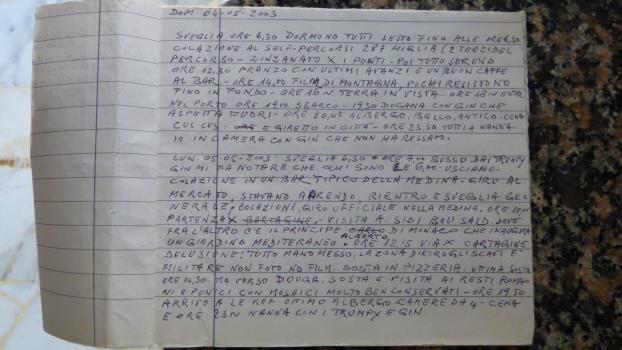 DOM. 04-05-2003
SVEGLIA ORE 6,30 DORMONO TUTTI LETTO FINO ALLE ORE 8,30
COLAZIONE AL SELF-PERCORSI 287 MIGLIA (2 TERZI DEL
PERCORSO - ZINZANATO X I PONTI - POI TUTTO SERENO
ORE 12,30 PRANZO CON ULTIMI AVANZI E UN BUON CAFFE
AL BAR - ORE 14,00 FILM DI MONTAGNA, POCHI RESISTONO
FINO IN FONDO - ORE 16 TERRA IN VISTA. ORE 18 ENTR
NEL PORTO ORE 19,00 SBARCO - 1930 DOGANA CON GIN CHE
ASPETTA FUORI - ORE 20,45 ALBERGO, BELLO, ANTICO. CENA
CUS CUS. E GIRETTO IN CITTÀ - ORE 23,30 TUTTI A NANNA
IO IN CAMERA CON GIN CHE NON HA RUSSATO.
LUN. 05-05-2003: SVEGLIA 6,30 BUSSO DAI TRUMPY
GIN MI FA NOTARE CHE QUI SONO LE 6,00. USCIAMO.
COLAZIONE IN UN BAR TIPICO DELLA MEDINA. GIRO AL
MERCATO, STAVANO APRENDO. RIENTRO E SVEGLIA GE
NERALE. COLAZIONE, GIRO UFFICIALE NELLA MEDINA, ORE
PARTENZA X CARTAGINE. VISITA A SIDI BOU SAID. DOVE
FRA L'ALTRO C'È IL PRINCIPE CARLO DI MONACO CHE INAUGURA
ALBERTO
UN GIARDINO MEDITERRANEO. ORE 12,15 VIA X CARTAGINE
DELUSIONE; TUTTO MANOMESSO, LA ZONA DIETRO GLI SCAVI È
MILITARE NON FOTO NO FILM. SOSTA IN PIZZERIA. OTTIMA SOSTA
ORE 14,30 VERSO DOUGA. SOSTA E VISITA AI RESTI ROMA
NI E PUNICI CON MOSAICI MOLTO BEN CONSERVATI - ORE 19,50
ARRIVO A LE KEF OTTIMO ALBERGO CAMERE DA 4 - CENA
E ORE 23 NANNA CON I TRUMPY E GIN.